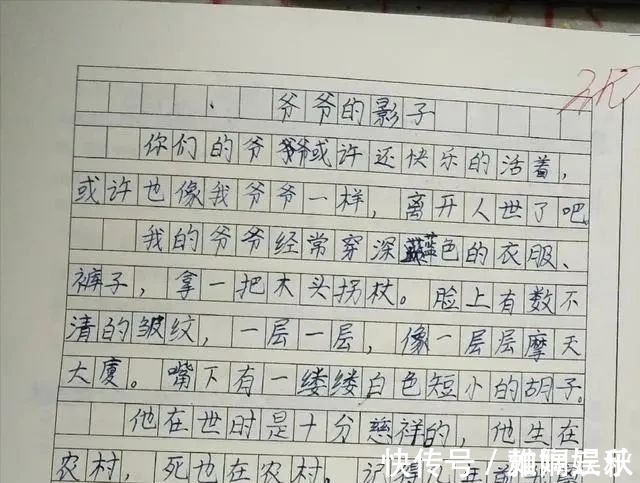 爷爷的影子
你们的爷爷或许还快乐的活着，
或许也像我爷爷一样，离开人世了吧
我的爷爷经常穿深蓝色的衣服、
裤子，拿一把木头拐杖。脸上有数不
清的皱纹，一层一层，像一层层摩天
大厦。嘴下有一缕缕白色短小的胡子。
他在世时是十分慈祥的，他生在
农村，死也在农村。记得几年前
快传号／